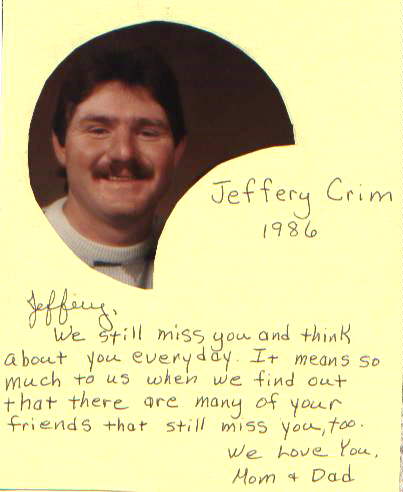 Jeffery Crim
1986
Jeffery,
We still miss you and think
about you everyday. It means so
much to us when we find out
that there are many of your
friends that still miss you, too.
We Love You,
Mom & Dad